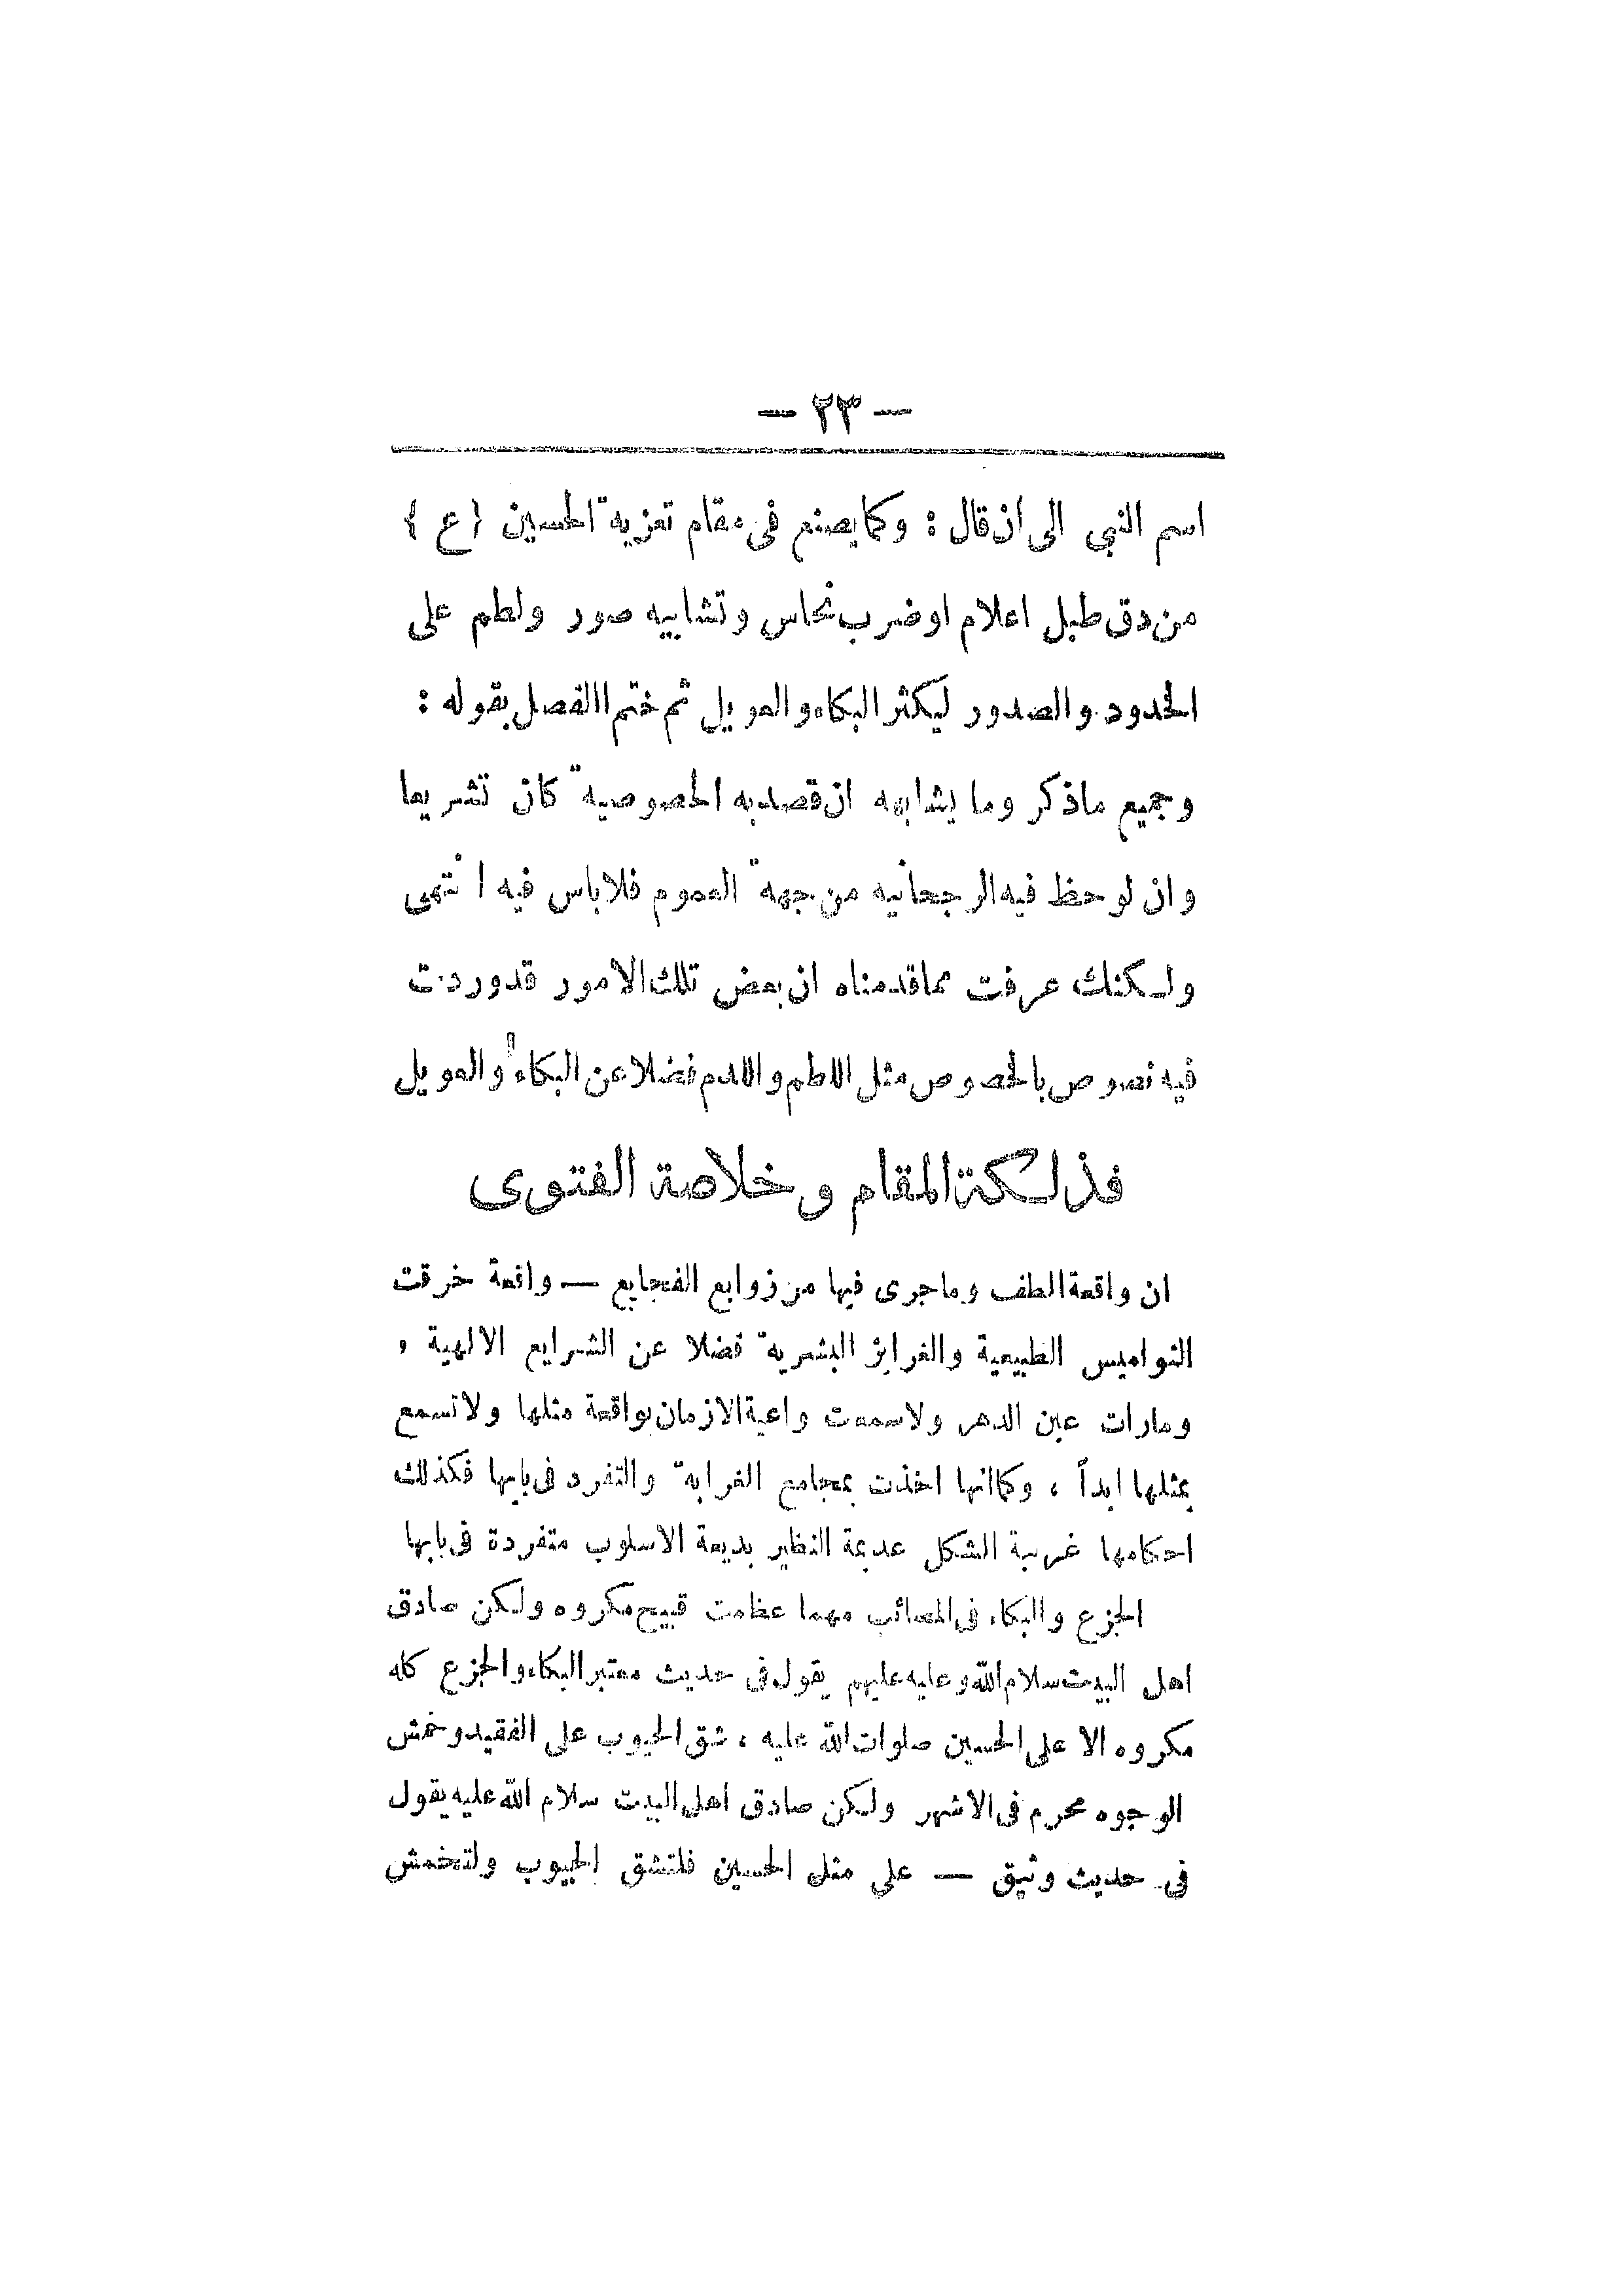 — ٢٣ —
اسم النبي الى ان قال : وكما يصنع في مقام تعزية الحسين (ع)
من دق طبل اعلام او ضرب نحاس وتشابيه صور ولطم على
الخدود والصدور ليكثر البكاء والعويل ثم ختم االفصل بقوله :
وجميع ماذكر وما يشابهه ان قصد به الخصوصية كان تشريعا
وان لوحظ فيه الرجحانيه من جهة العموم فلا باس فيه انتهى
ولكنك عرفت مماقدمناه ان بعض تلك الامور قدوردت
فيه نصوص بالخصوص مثل اللطم واللدم فضلا عن البكاء والعويل
فذلكة المقام وخلاصة الفتوى
ان واقعة الطف وماجرى فيها من زوابع الفجايع — واقعة خرقت
النواميس الطبيعية والغرايز البشرية فضلا عن الشرايع الالهية ،
ومارات عين الدهر ولاسمعت واعية الازمان بواقعة مثلها ولاتسمع
بمثلها ابداً ، وكماانها اخذت بمجامع الغرابة والتفرد في بابها فكذلك
احكامها غريبة الشكل عديمة النظير بديعة الاسلوب متفردة في بابها
الجزع والبكاء في المصائب مهما عظمت قبيح مكروه ولكن صادق
اهل البيت سلام الله وعليه عليهم يقول في حديث معتبر البكاء والجزع كله
مكروه الا على الحسين صلوات الله عليه ، شق الجيوب على الفقيد وخمش
الوجوه محرم في الاشهر ولكن صادق اهل البيت سلام الله عليه يقول
في حديث وثيق — على مثل الحسين فلتشق الجيوب ولتخمش